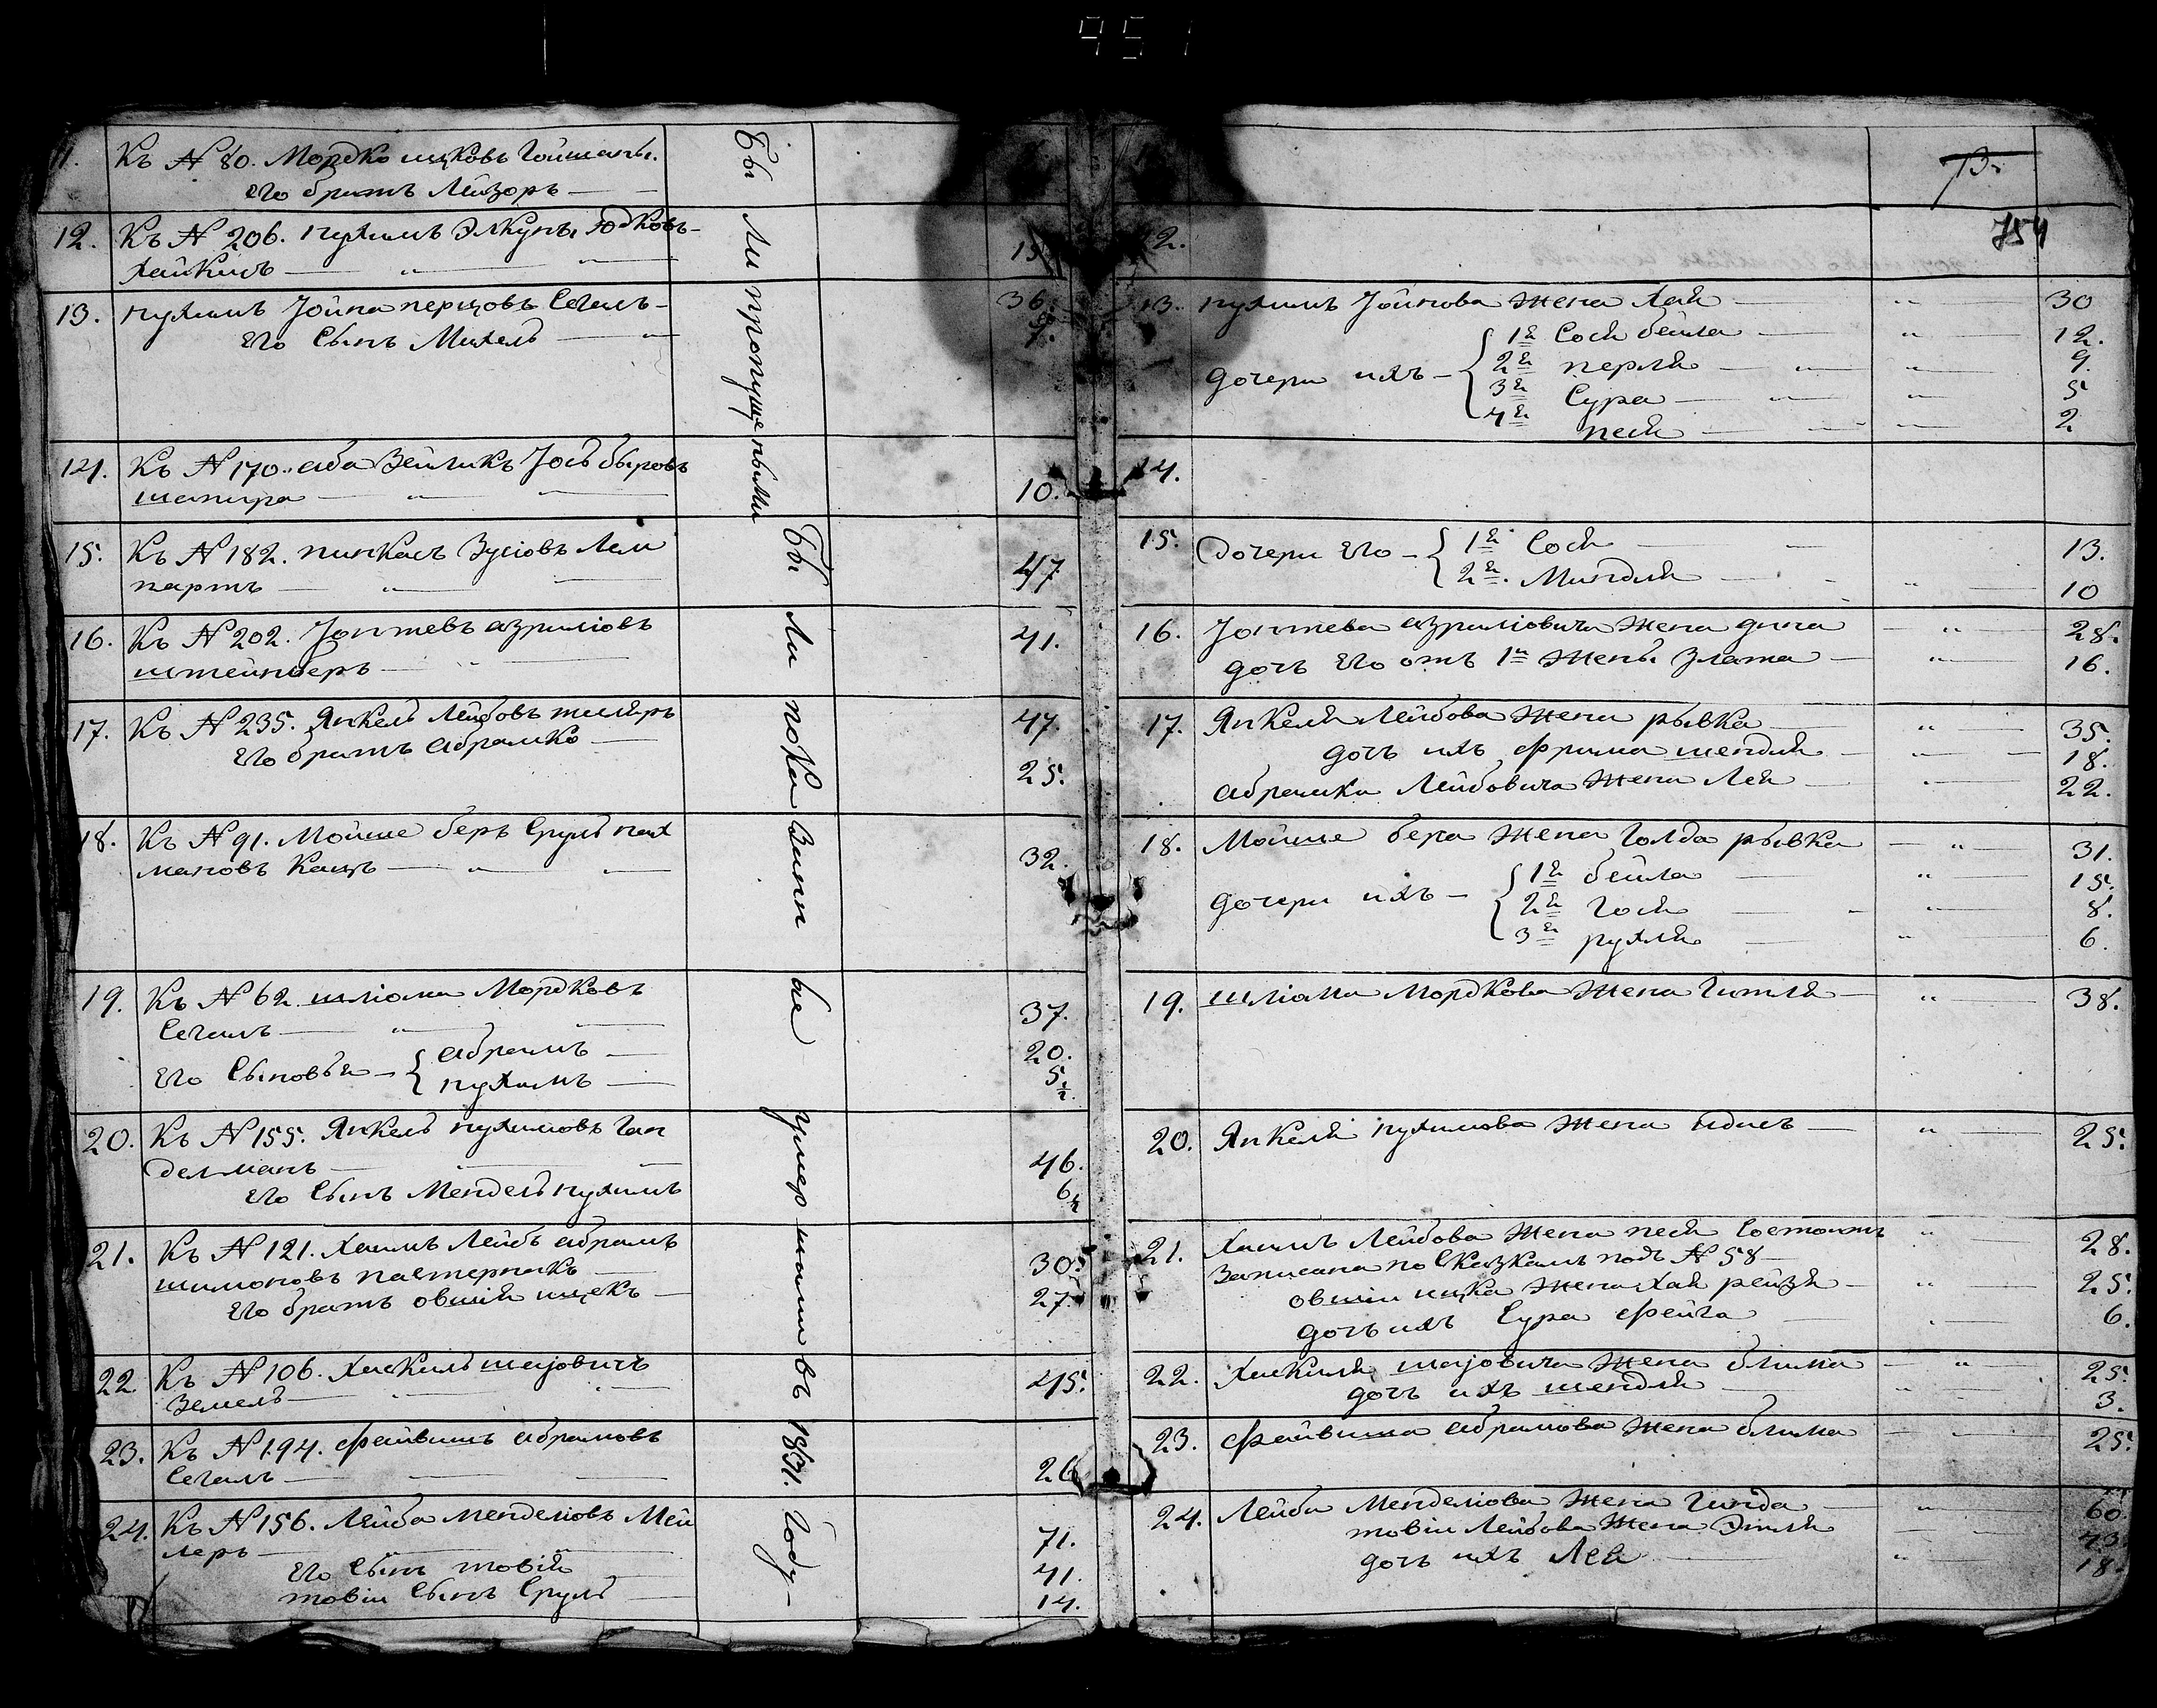 951
11. Къ № 80. Мордко ицковъ Гойшанъ.
его братъ Лейзоръ
12. Къ № 206. нухимъ Элкунъ Юдковъ
хайкинъ
15
13. нухимъ Іойна перцовъ Сегаль
36.
его Сынъ Михель
14. Къ № 170. аба Зейликъ Іось быровъ
шапира
10.
15. Къ № 182. пинхасъ Зусіовъ Лем
партъ
47
16. Къ № 202. Іонтевъ азриліовъ
41.
штейнберъ
17. Къ № 235. Янкель Лейбовъ
47.
его братъ абрамко
25.
18. Къ № 91. Мойше беръ Сруль нах
мановъ Кацъ
32.
19. Къ № 62. шліома Мордковъ
Сегаль
37.
его Сыновья
абрамъ
20.
нухимъ
5 1/2.
20. Къ № 155. Янкель нухимовъ Ган
делманъ
46.
его Сынъ Мендель нухимъ
6 1/2
21. Къ № 121. Хаимъ Лейбъ абрамъ
шимоновъ пастернакъ
30.
его братъ овшія ицекъ
27.
22. Къ № 106. Хаскиль шаіовичъ
Земель
45.
23. Къ № 194. файвишъ абрамовъ
Сегаль
26
24. Къ № 156. Лейба менделіовъ Мей
леръ
71.
его Сынъ товій
41.
товіи Сынъ Сруль
14.
Бы ли пропущеными
Бы ли показани
умершими въ 1831. Году
73.
754
12.
13. нухима Іойнова жена хая
30
дочери ихъ
1я Сося бейла
12.
2я перля
9.
3я Сура
5
4я песя
2
14.
15. дочери его
1я Сося
13.
2я. Миндля
10
16. Іонтева азриліовича жена дина
28.
дочь его отъ 1й жены злата
16.
17. Янкеля Лейбова жена рывка
35.
дочь ихъ фрима шендля
18.
абрамка Лейбовича жена Лея
22.
18. Мойше бера жена Голда рывка
31.
дочери ихъ
1я бейла
15.
2я Гося
8.
3я рухля
6.
19. шліома Мордкова жена Гитля
38.
20. Янкеля нухимова жена идись
25.
21. Хаимъ Лейбова жена песя Состоитъ
28.
Записана по Сказкамъ подъ № 58
овшіи ицка жена хая рейзя
25.
дочь ихъ Сура фейга
6.
22. Хаскиля шаіовича жена блима
25.
дочь ихъ шендля
3.
23. файвиша абрамова жена блима
25.
24. Лейби Менделіова жена Гинда
60.
товіи Лейбова жена Этля
43
дочь ихъ Лея
18.